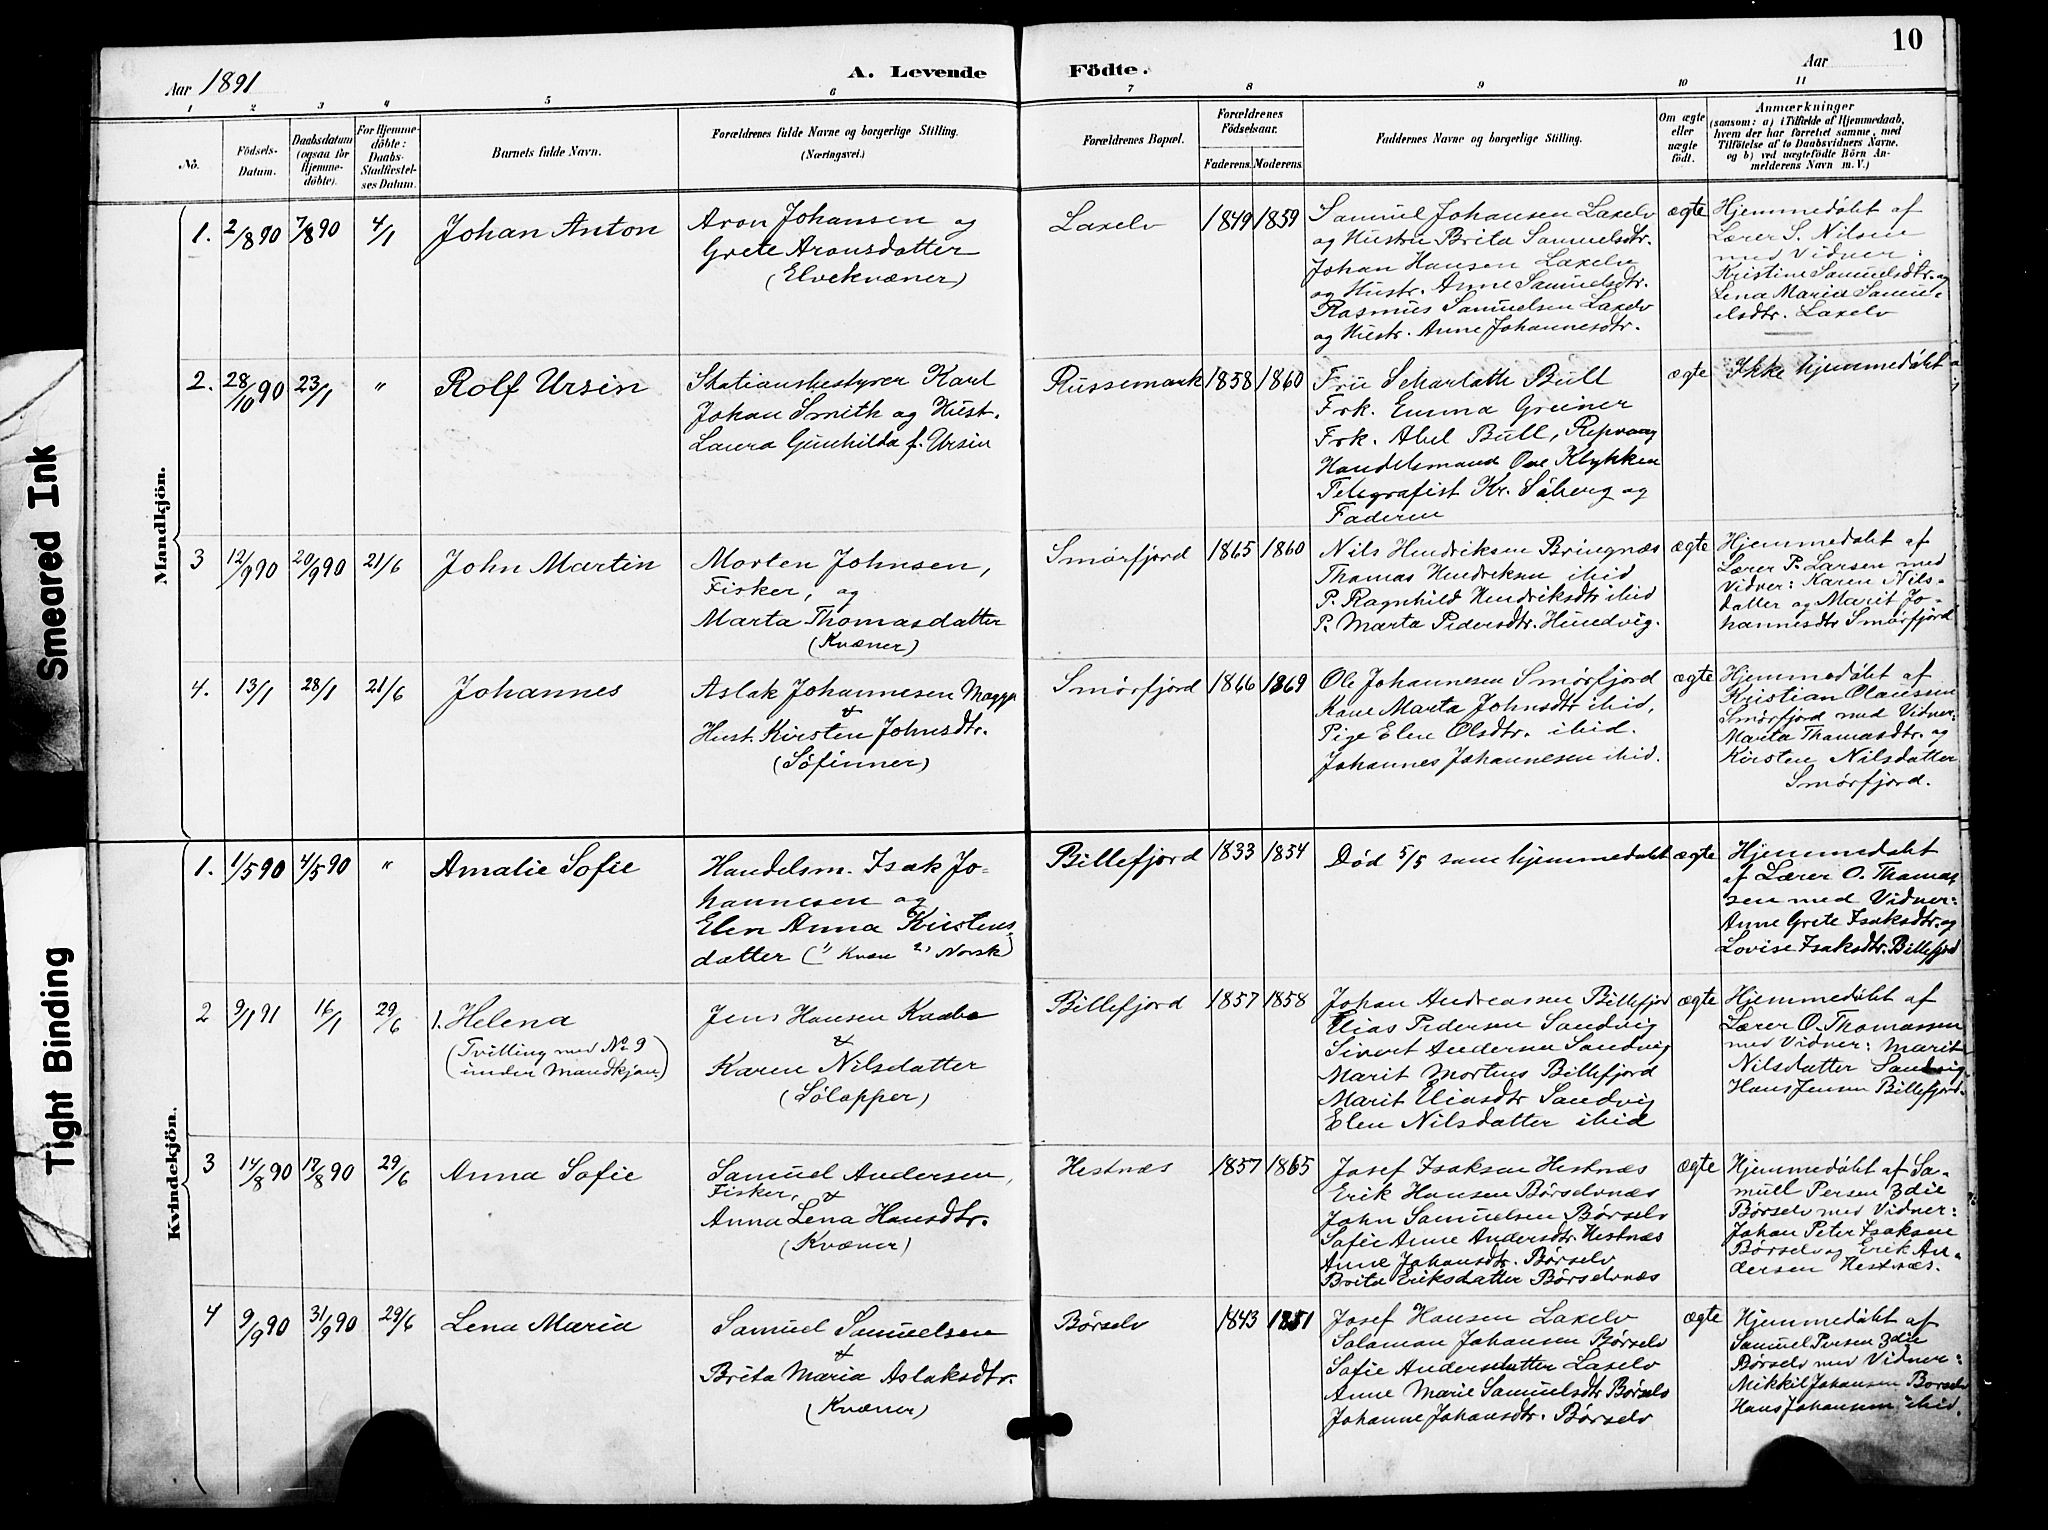 10
Aar 1891
A. Levende
Födte.
Aar
1 2 3 4 5 6 7 8 9 10 11
No.
Födsels-
Datum.
Daabsdatum
(ogsaa for
Hjemme-
döbte).
For Hjemme-
döbte:
Daabs-
Stadfæstel-
ses Datum.
Barnets fulde Navn.
Forældrenes fulde Navne og borgerlige Stilling.
(Næringsvei.)
Forældrenes Bopæl.
Forældrenes
Födselsaar.
Faderens. Moderens.
Faddernes Navne og borgerlige Stilling.
Om ægte
eller
uægte
födt.
Anmærkninger
(saasom: a) i Tilfælde af Hjemmedaab,
hvem der har forrettet samme, med
Tilföielse af to Daabsvidners Navne,
og b) ved uægtefödte Börn An-
melderens Navn m. V.)
Mandkjön.
1. 2/8 90 7/8 90 4/1 Johan Anton
Aron Johansen og
Grete Aronsdatter
(Elvekvæner)
Laxelv 1849 1859
Samuel Johansen Laxelv
og Hustru Brita Samuelsdtr.
Johan Hansen Laxelv
og Hustr. Anne Samuelsdtr.
Rasmus Samuelsen Laxelv
og Hustr. Anne Johannesdtr.
ægte
Hjemmedøbt af
Lærer S. Nilsen
med Vidner:
Kristine Samuelsdtr. og
Lena Marie Samu-
elsdtr. Laxelv
2. 28/10 90 23/1 " Rolf Ursin
Stationsbestyrer Karl
Johan Smith og Hust.
Laura Gunhilda f. Ursin
Russemark 1858 1860
Fru Scharlotte Bull
Frk. Emma Greiner
Frk. Abel Bull, Repvaag
Handelsmand Ove Klykken
Telegrafist Kr. Søberg og
Faderen
ægte
Ikke hjemmedøbt
3 12/9 90 20/9 90 21/6 John Martin
Morten Johnsen,
Fisker, og
Marta Thomasdatter
(Kvæner)
Smørfjord 1865 1860
Nils Hendriksen Bringnæs
Thomas Hendriksen ibid
P. Ragnhild Hendriksdtr ibid
P. Marta Pedersdtr. Hundvig.
ægte
Hjemmedøbt af
Lærer P. Larsen med
Vidner: Karen Nils-
datter og Marit Jo-
hannesdtr Smørfjord
4. 13/1 28/1 21/6 Johannes
Aslak Johannesen
&
Hust. Kirsten Johnsdtr.
(Söfinner)
Smørfjord 1866 1869
Ole Johannesen Smørfjord
Kone Marta Johnsdtr ibid,
Pige Elen Olsdtr. ibid.
Johannes Johannesen ibid.
ægte
Hjemmedøbt af
Kristian Olaussen
Smørfjord med Vidner:
Marta Thomasdtr. og
Kirsten Nilsdatter
Smørfjord.
Kvindekjön.
1. 1/5 90 4/5 90 " Amalie Sofie
Handelsm. Isak Jo-
hannesen og
Elen Anna Kirstens-
datter (1) Kvæn 2) Norsk)
Billefjord 1833 1854
Død 5/5 som hjemmedøbt
ægte
Hjemmedøbt
af Lærer O. Thomas-
sen med Vidner:
Anne Grete Isaksdtr. og
Lovise Isaksdtr. Billefjord
2 9/1 91 16/1 29/6 1. Helena
(Tvilling med No 9
under Mandkjøn.)
Jens Hansen Kaabe
&
Karen Nilsdatter
(Sølapper)
Billefjord 1857 1858
Johan Andreassen Billefjord
Elias Pedersen Sandvig
Sivert Andersen Sandvig
Marit Mortens Billefjord
Marit Eliasdtr Sandvig
Elen Nilsdatter ibid
ægte
Hjemmedøbt af
Lærer O. Thomassen
med Vidner: Marit
Nilsdatter Sandvig,
Hans Jensen Billefjord.
3 14/8 90 17/8 90 29/6 Anna Sofie
Samuel Andersen,
Fisker, &
Anna Lena Hansdtr.
(Kvæner)
Hestnæs 1857 1865
Josef Isaksen Hestnæs
Erik Hansen Børselvnæs
John Samuelsen Børselv
Sofie Anne Andersdtr. Hestnæs
Anne Johansdtr. Børselv
Brita Eriksdatter Børselvnæs
ægte
Hjemmedøbt af Sa-
mull Persen 3die
Børselv med Vidner:
Johan Peter Isaksen
Børselv og Erik An-
dersen Hestnæs.
4 9/9 90 31/9 90 29/6 Lena Maria
Samuel Samuelsen
&
Brita Maria Aslaksdtr.
(Kvæner)
Børselv 1843 1851
Josef Hansen Laxelv
Salomon Johansen Børselv
Sofie Andersdatter Laxelv
Anne Marie Samuelsdtr Børselv
Johanne Johansdtr. Børselv
ægte
Hjemmedøbt af
Samuel Persen 3die
Børselv med Vidner:
Mikkil Johansen Børselv
Hans Johansen ibid.
Smeared Ink
Tight Binding